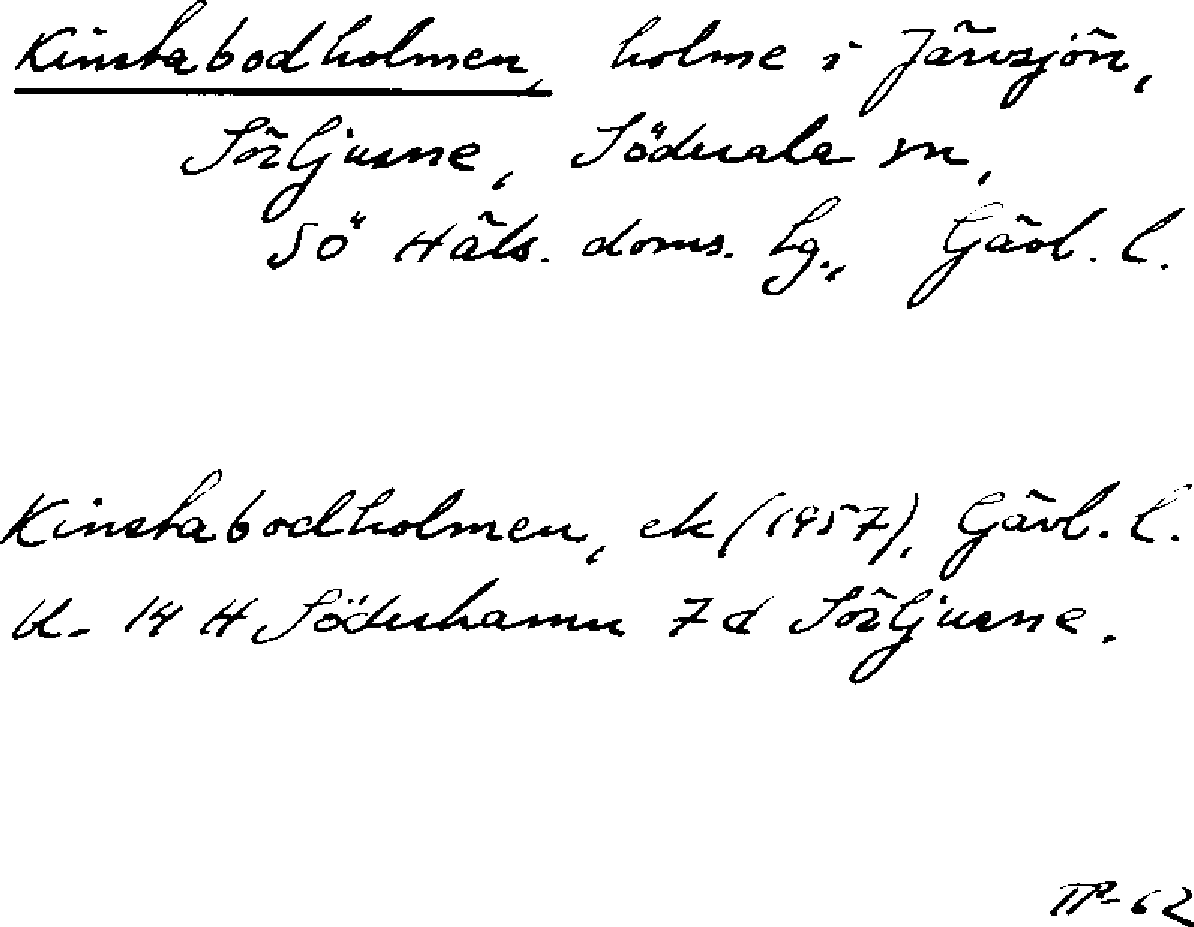 Kinstabodholmen, holme i Järvsjön,
Sörljusne, Söderala sn,
SÖ Häls. doms. Lg., Gävl. l.
Kinstabodholmen, ek (1957), Gävl. l.
bl. 14 H Söderhamn 7d Sörljusne.
TP-62